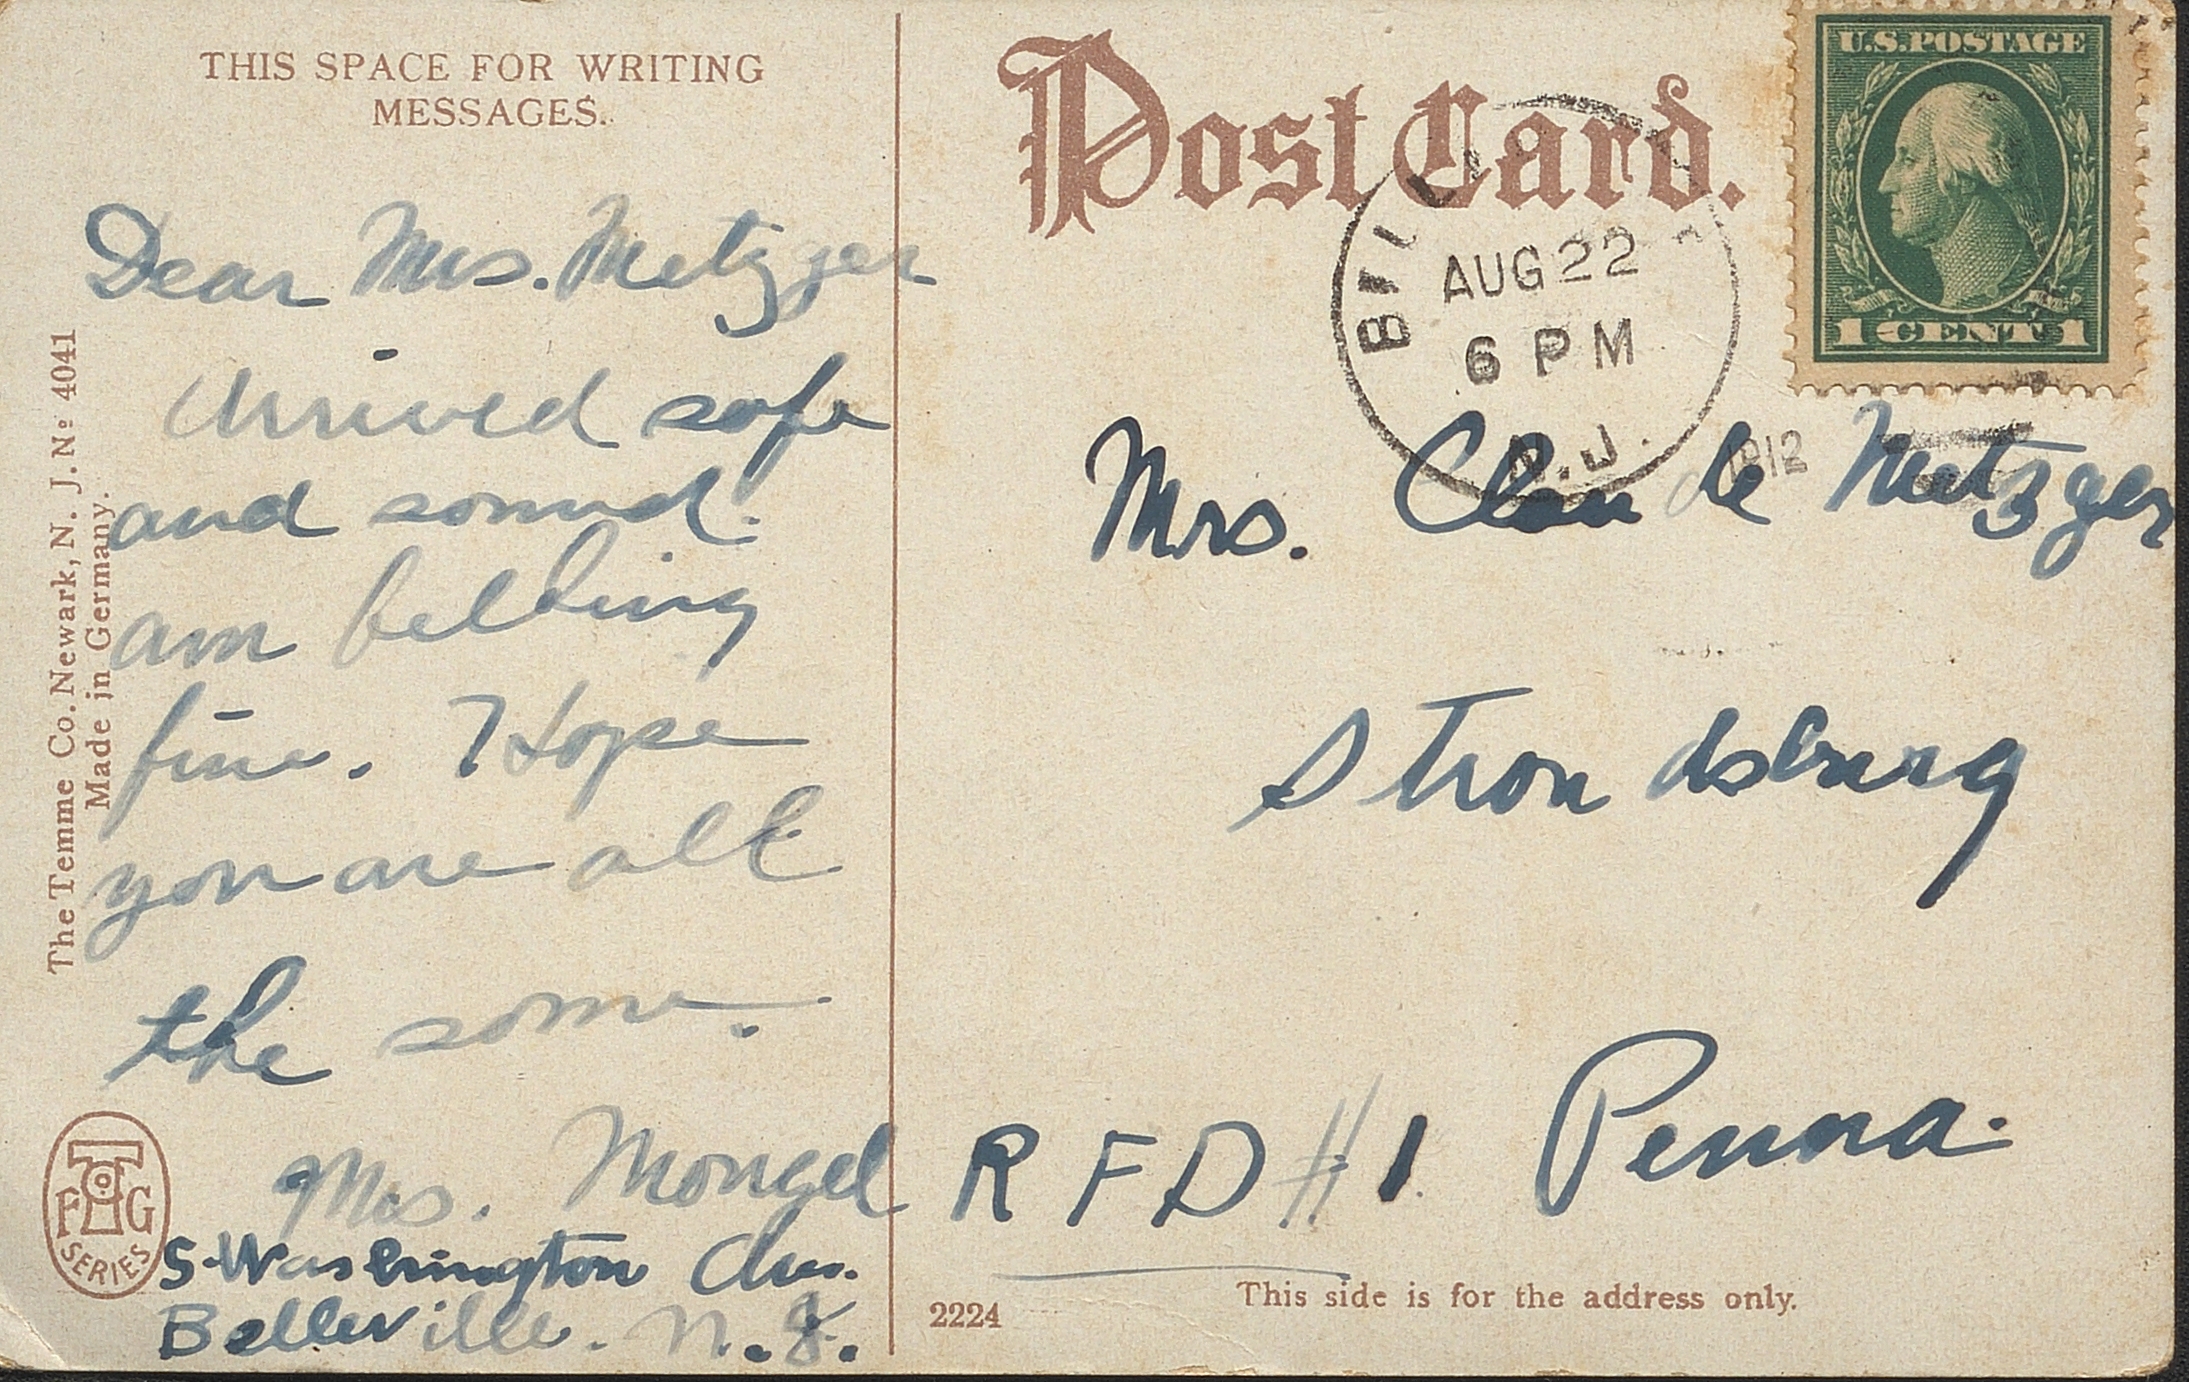 THIS SPACE FOR WRITING
MESSAGES.
Dear Mrs. Metzger
Arrived safe
and sound.
am felling
fine. Hope
you are all
the same.
Mrs. Mongel
S. Washington Ave.
Belleville. N.J.
The Temme Co. Newark, N. J. No 4041
Made in Germany.
F T G
SERIES
Post Card.
U.S. POSTAGE
1 CENT 1
AUG 22
6 PM
N.J.
1912
Mrs. Claude Metzger
Stroudsburg
R F D # 1 Penna.
This side is for the address only.
2224